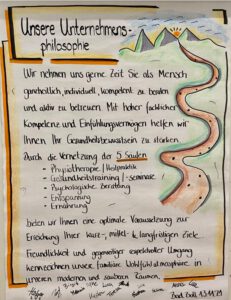 Unsere Unternehmens-
philosophie
Wir nehmen uns gerne Zeit Sie als Mensch
ganzheitlich, individuell, kompetent zu beraten
und aktiv zu betreuen. Mit hoher fachlicher
Kompetenz und Einfühlungsvermögen helfen wir
Ihnen, Ihr Gesundheitsbewusstsein zu stärken.
Durch die Vernetzung der 5 Säulen
- Physiotherapie / Heilpraktik
- Gesundheitstraining / -seminare
- Psychologische Beratung
- Entspannung
- Ernährung
bieten wir Ihnen eine optimale Voraussetzung zur
Erreichung Ihrer kurz-, mittel- & langfristigen Ziele.
Freundlichkeit und gegenseitiger respektvoller Umgang
kennzeichnen unsere familiäre Wohlfühlatmosphäre in
unseren modernen und sauberen Räumen.